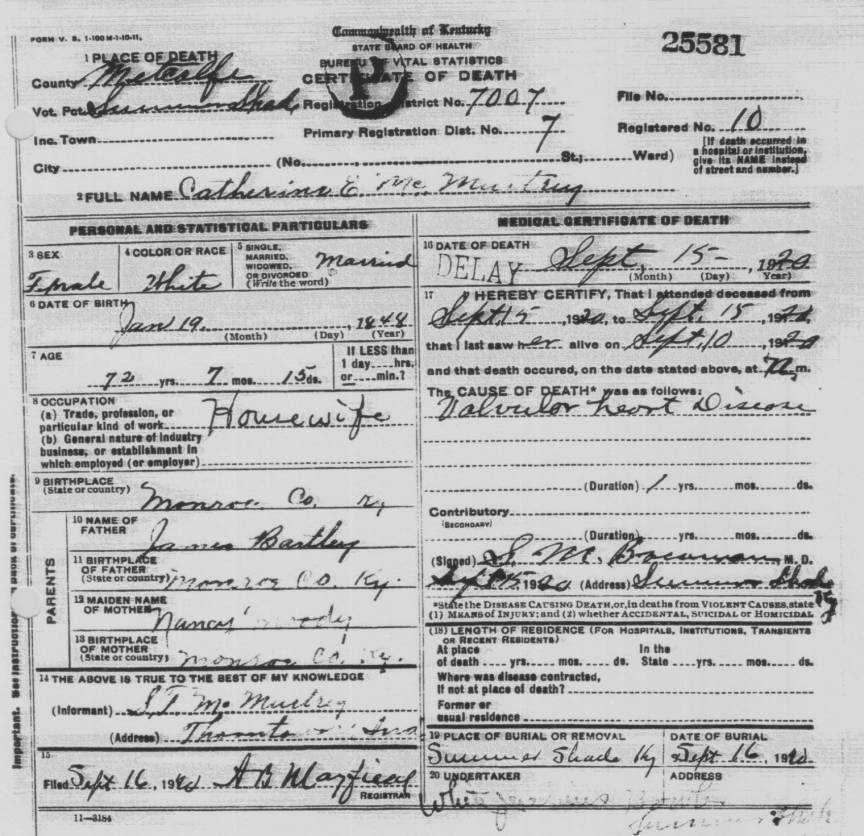 FORM V. S. 1-100 M-1-10-11.
Commonwealth of Kentucky
STATE BOARD OF HEALTH
BUREAU VITAL STATISTICS
CERTIFICATE OF DEATH
25581
1 PLACE OF DEATH
County Metcalfe
Vot. Pct. Summer Shade Registration District No. 7007 File No.
Inc. Town Primary Registration Dist. No. 7 Registered No. 10
City (No. , St.; Ward)
[If death occurred in a hospital or institution, give its NAME instead of street and number.]
2 FULL NAME Catherine E. Mc Murtrey
PERSONAL AND STATISTICAL PARTICULARS
3 SEX Female
4 COLOR OR RACE White
5 SINGLE, MARRIED, WIDOWED, OR DIVORCED (Write the word) Married
6 DATE OF BIRTH
Jan 19. , 1848
(Month) (Day) (Year)
7 AGE
72 yrs. 7 mos. 15 ds.
If LESS than 1 day hrs. or min.?
8 OCCUPATION
(a) Trade, profession, or particular kind of work Housewife
(b) General nature of industry business, or establishment in which employed (or employer)
9 BIRTHPLACE
(State or country) Monroe Co. Ky
PARENTS
10 NAME OF FATHER James Bartley
11 BIRTHPLACE OF FATHER (State or country) Monroe Co. Ky.
12 MAIDEN NAME OF MOTHER Nancy Moody
13 BIRTHPLACE OF MOTHER (State or country) Monroe Co. Ky.
14 THE ABOVE IS TRUE TO THE BEST OF MY KNOWLEDGE
(Informant) S. T. Mc Murtrey
(Address)
15
Filed Sept 16, 1920 A B Mayfield
REGISTRAR
11—3184
MEDICAL CERTIFICATE OF DEATH
16 DATE OF DEATH
DELAY Sept, 15 , 1920
(Month) (Day) (Year)
17 I HEREBY CERTIFY, That I attended deceased from
Sept. 15 , 1920, to Sept. 15 , 1920,
that I last saw her alive on Sept. 10 , 1920
and that death occured, on the date stated above, at m.
The CAUSE OF DEATH* was as follows:
Valvulor heart Disease
(Duration) 1 yrs. mos. ds.
Contributory
(SECONDARY)
(Duration) yrs. mos. ds.
(Signed) S. M. , M. D.
Sept 15 1920 (Address) Summer Shade
*State the DISEASE CAUSING DEATH, or, in deaths from VIOLENT CAUSES, state
(1) MEANS OF INJURY; and (2) whether ACCIDENTAL, SUICIDAL or HOMICIDAL
(18) LENGTH OF RESIDENCE (FOR HOSPITALS, INSTITUTIONS, TRANSIENTS OR RECENT RESIDENTS)
At place of death yrs. mos. ds. In the State yrs. mos. ds.
Where was disease contracted,
If not at place of death?
Former or usual residence
19 PLACE OF BURIAL OR REMOVAL
Summer Shade Ky
DATE OF BURIAL
Sept 16, 1920
20 UNDERTAKER
ADDRESS